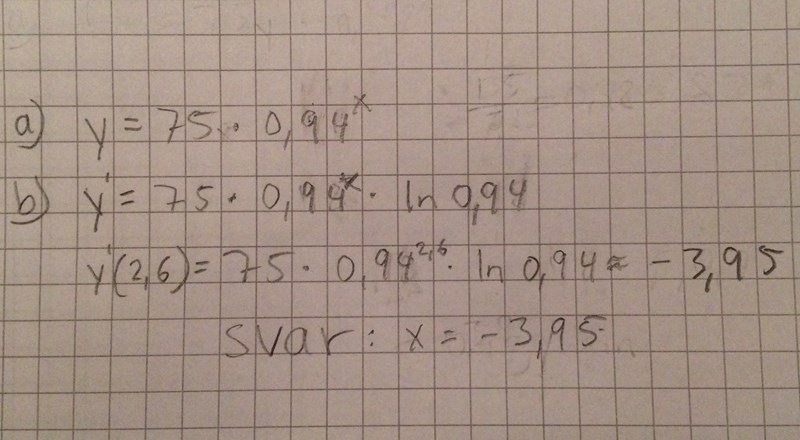 a) y = 75 · 0,94^x
b) y' = 75 · 0,94^x · ln 0,94
y'(2,6) = 75 · 0,94^2,6 · ln 0,94 ≈ -3,95
svar: x = -3,95